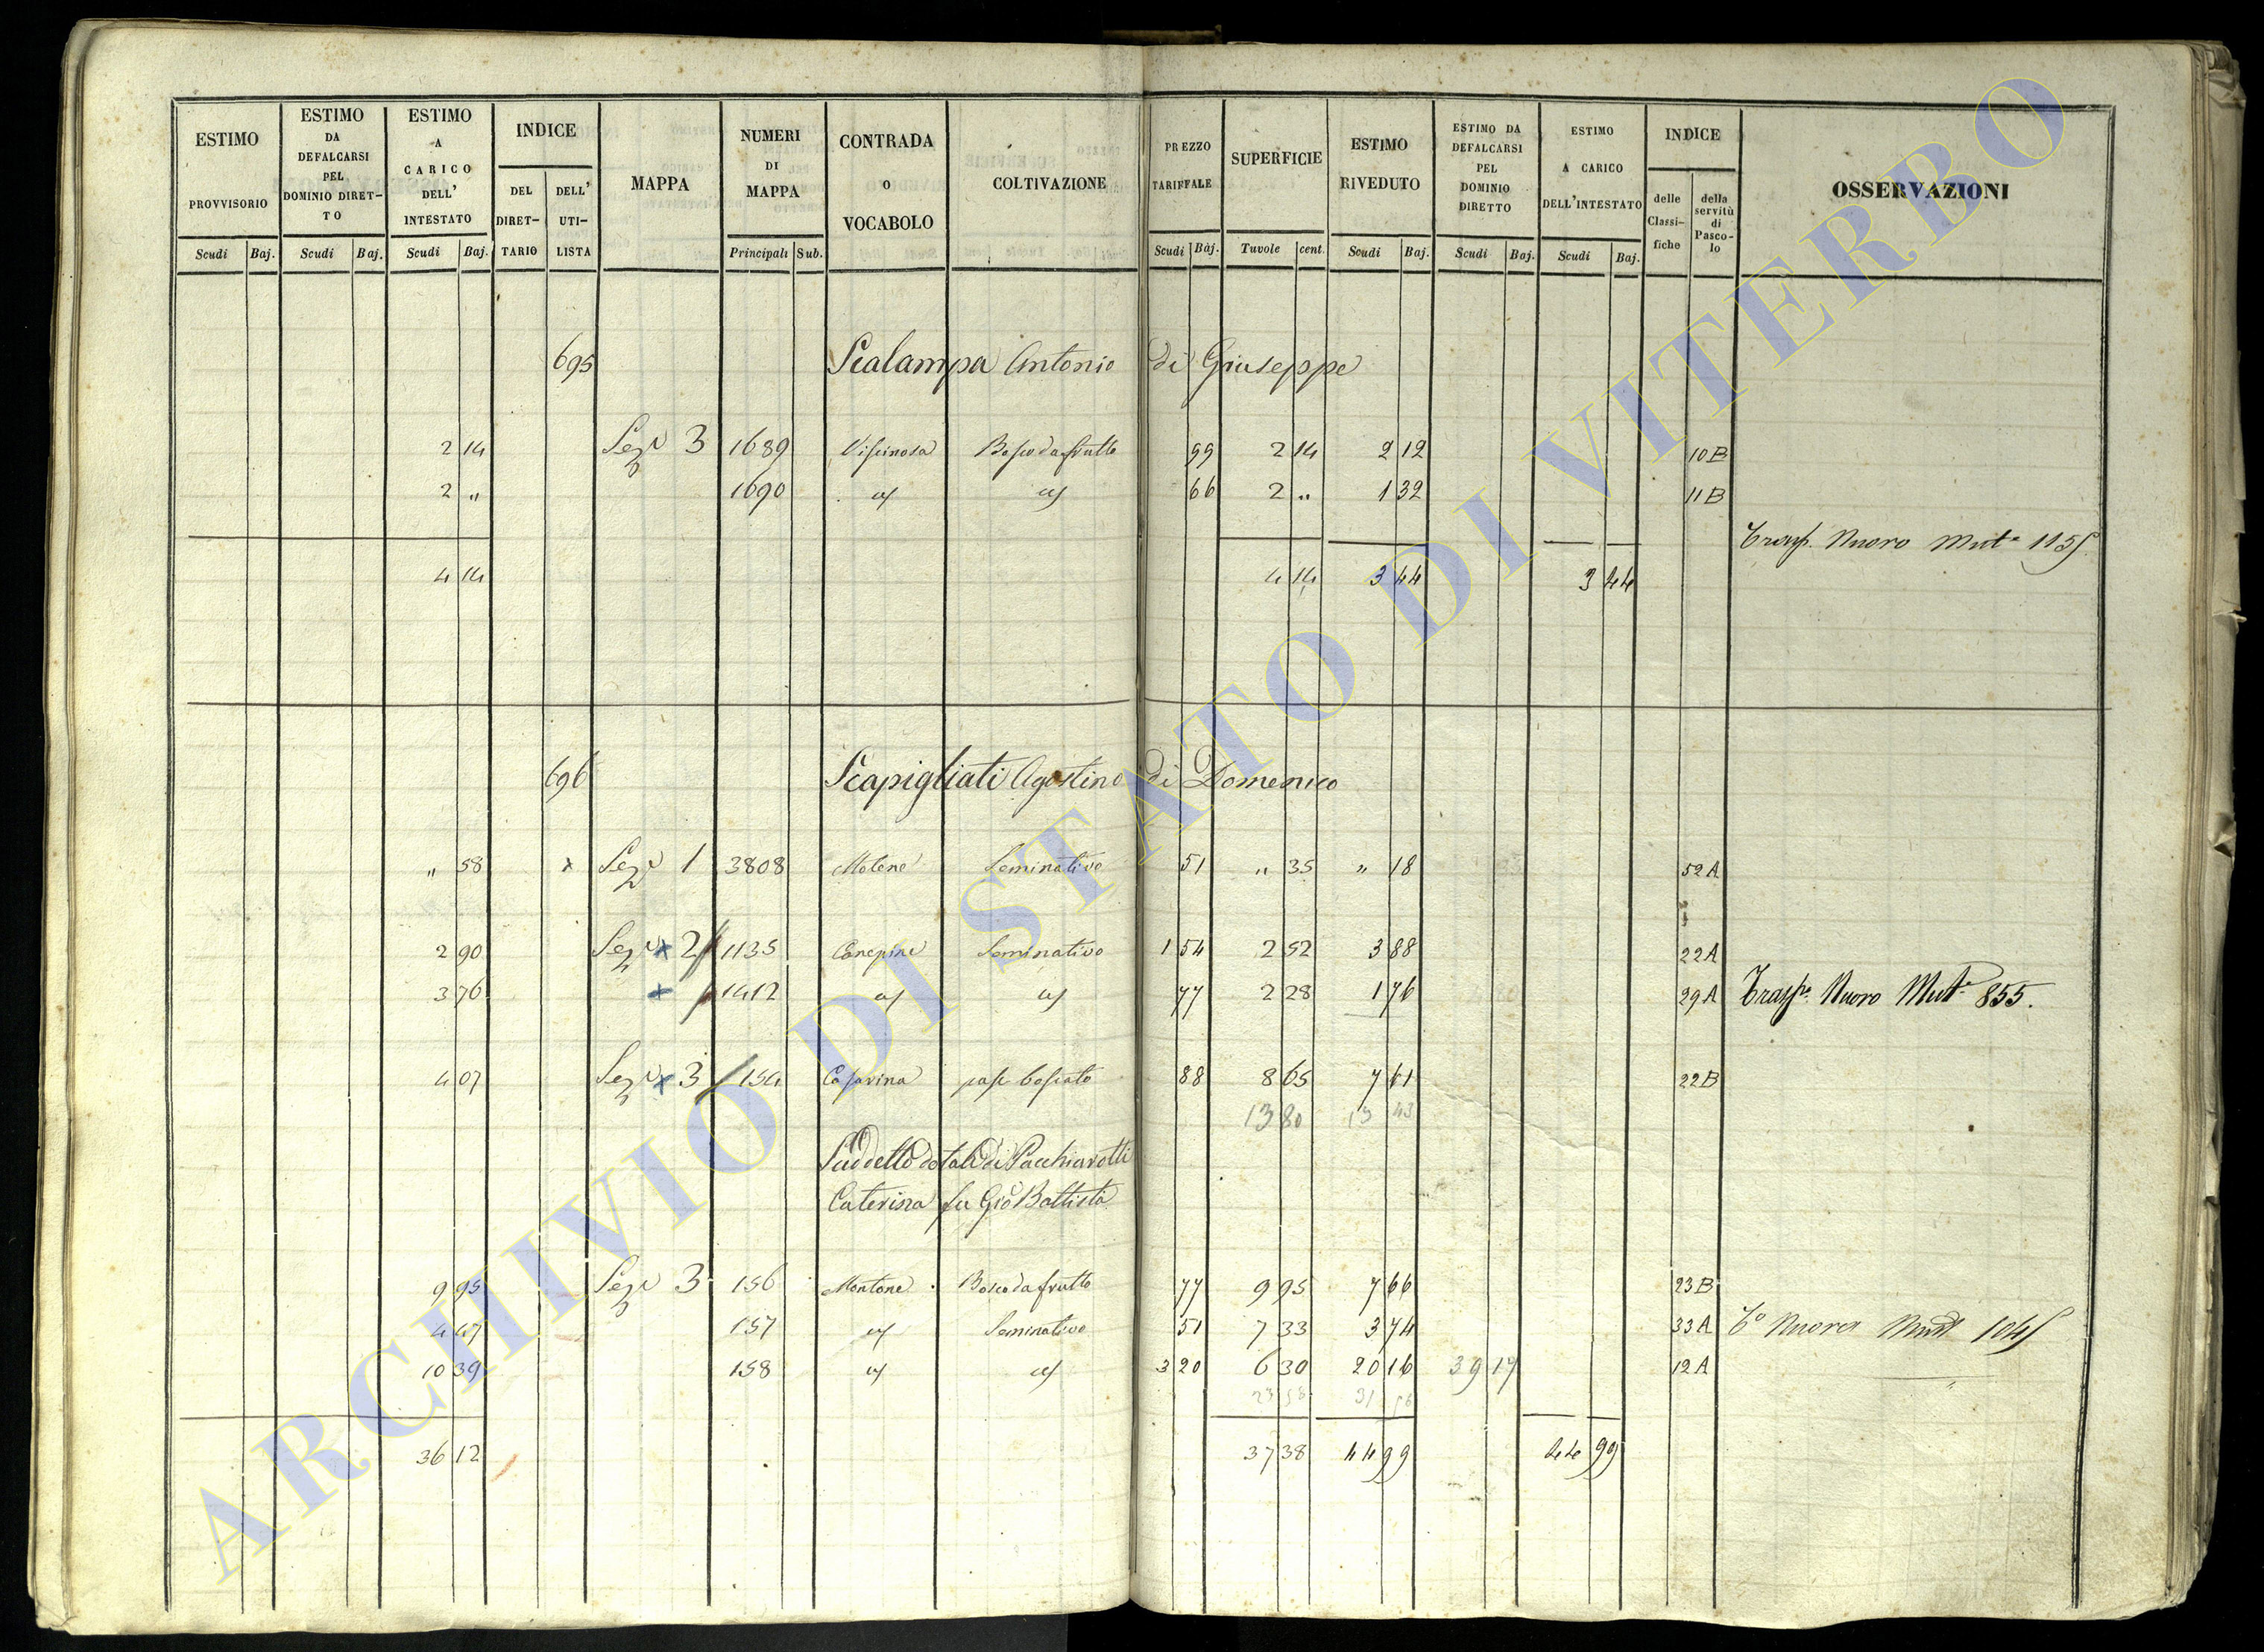 ESTIMO PROVVISORIO
ESTIMO DA DEFALCARSI PEL DOMINIO DIRETTO
ESTIMO A CARICO DELL' INTESTATO
INDICE
DEL DIRETTARIO
DELL' UTILISTA
MAPPA
NUMERI DI MAPPA
CONTRADA O VOCABOLO
COLTIVAZIONE
PREZZO TARIFFALE
SUPERFICIE
ESTIMO RIVEDUTO
ESTIMO DA DEFALCARSI PEL DOMINIO DIRETTO
ESTIMO A CARICO DELL'INTESTATO
INDICE
delle Classifiche
della servitù di Pascolo
OSSERVAZIONI
Scudi Baj. Scudi Baj. Scudi Baj. Principali Sub. Scudi Baj. Tavole cent. Scudi Baj. Scudi Baj. Scudi Baj.
695 Scalampa Antonio di Giuseppe
2 14 Sezᵉ 3 1689 Viscinosa Bosco da frutto 99 2 14 2 12 10B
2 „ 1690 66 2 „ 1 32 11B
Trasp. Nuovo Mutᵃ 115
4 14 4 14 3 44 3 44
696 Scapigliati Agostino di Domenico
„ 58 x Sezᵉ 1 3808 Molene Seminativo 51 „ 35 „ 18 52A
2 90 Sezᵉ x 2 1135 Canepine Seminativo 1 54 2 52 3 88 22A
3 76 x 1412 77 2 28 1 76 29A Traspᵗᵒ Nuovo Mutᵃ 855.
4 07 Sezᵉ x 3 154 Casarina pasc boscato 88 8 65 7 61 22B
13 80 13 43
Suddetto dotali di Pacchiarotti
Caterina fu Gio Battista
9 95 Sezᵉ 3 156 Montone Bosco da frutto 77 9 95 7 66 23B
4 47 157 Seminativo 51 7 33 3 74 33A Tᵒ Nuovo 104
10 39 158 3 20 6 30 20 16 39 17 12A
23 58 31 56
36 12 37 38 44 99 44 99
ARCHIVIO DI STATO DI VITERBO